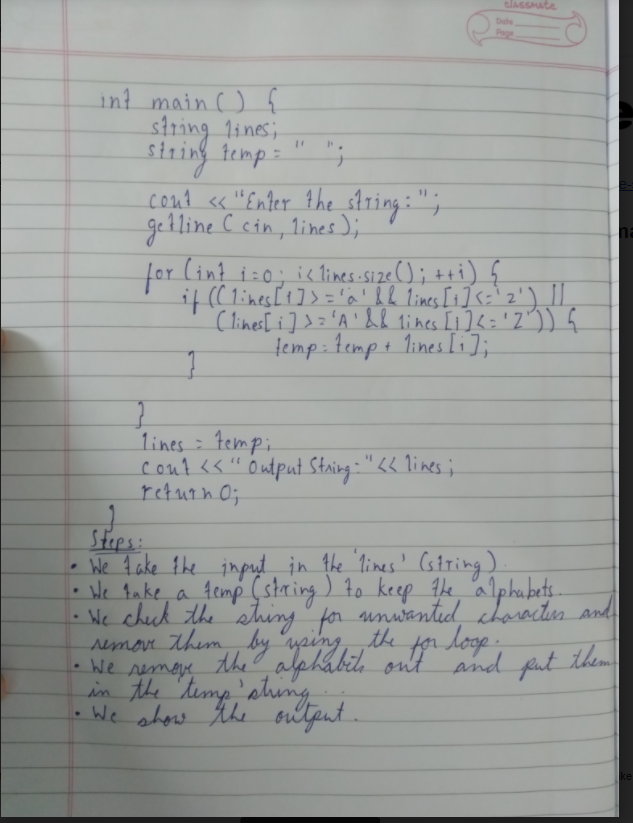 classmate
Date
Page
int main() {
string lines;
string temp = " ";
cout << "Enter the string:";
getline(cin, lines);
for (int i=0; i<lines.size(); ++i) {
if ((lines[i]>='a' && lines[i]<='z') ||
(lines[i]>='A' && lines[i]<='Z')) {
temp = temp + lines[i];
}
}
lines = temp;
cout << "Output String:" << lines;
return 0;
}
Steps:
• We take the input in the 'lines' (string)
• We take a temp (string) to keep the alphabets.
• We check the string for unwanted characters and
remove them by using the for loop.
• We remove the alphabits out and put them
in the temp' string
• We show the output.